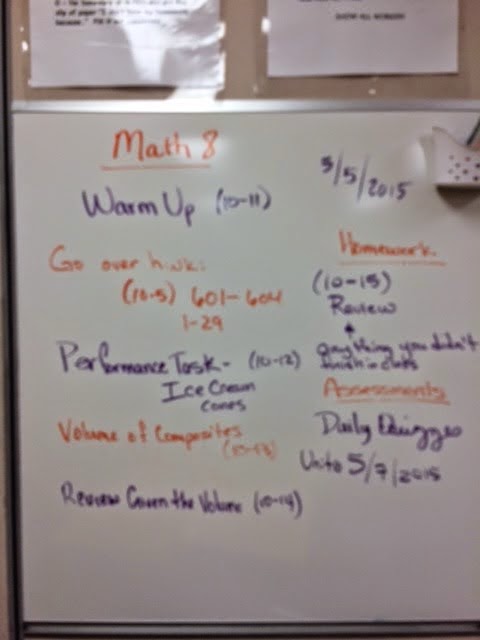 SHOW ALL WORK!!!
Math 8
5/5/2015
Warm Up (10-11)
Go over h.wk:
(10-5) 601-604
1-29
Performance Task - (10-12)
Ice Cream
Cones
Volume of Composites
(10-13)
Review Given the Volume (10-14)
Homework
(10-15)
Review
anything you didn't
finish in class
Assessments
Daily Quizzes
5/7/2015